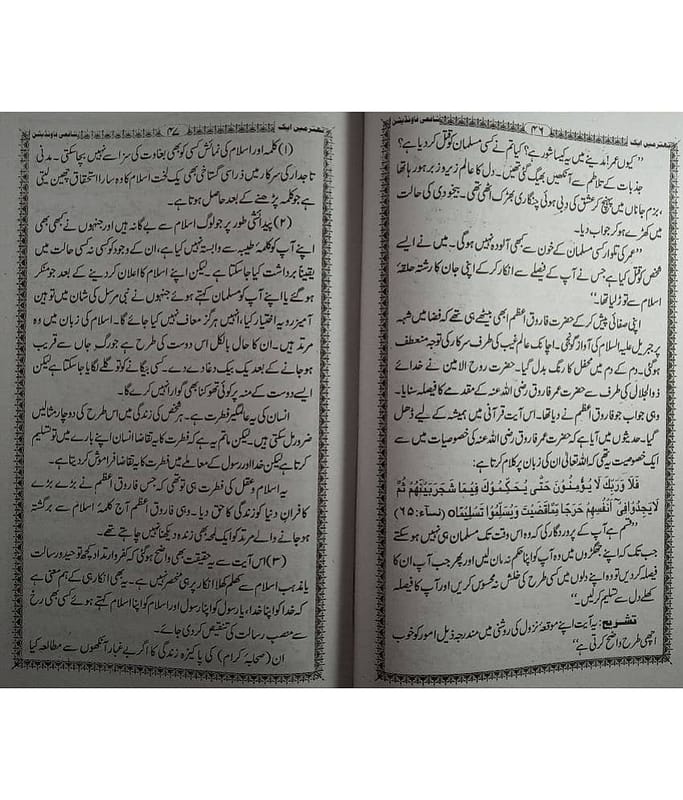 تہتر میں ایک
۴۶
شافعی فاؤنڈیشن
”کیوں عمر! مدینے میں یہ کیسا شور ہے؟ کیا تم نے کسی مسلمان کو قتل کر دیا ہے؟
جذبات کے تلاطم سے آنکھیں بھیگ گئی تھیں۔ دل کا عالم زیر و زبر ہو رہا تھا
، بزم جاناں میں پہنچ کر عشق کی دبی ہوئی چنگاری بھڑک اٹھی تھی۔ بیخودی کی حالت
میں کھڑے ہو کر جواب دیا۔
”عمر کی تلوار کسی مسلمان کے خون سے کبھی آلودہ نہیں ہوگی۔ میں نے ایسے
شخص کو قتل کیا ہے جس نے آپ کے فیصلے سے انکار کر کے اپنی جان کا رشتہ حلقۂ
اسلام سے توڑ لیا تھا۔“
اپنی صفائی پیش کر کے حضرت فاروق اعظم ابھی بیٹھے ہی تھے کہ فضا میں شہپر
جبریل علیہ السلام کی آواز گونجی۔ اچانک عالم غیب کی طرف سرکار کی توجہ منعطف
ہو گئی۔ دم کے دم میں محفل کا رنگ بدل گیا۔ حضرت روح الامین نے خدائے
ذوالجلال کی طرف سے حضرت عمر فاروق رضی اللہ عنہ کے مقدمے کا فیصلہ سنایا۔
وہی جواب جو فاروق اعظم نے دیا تھا۔ اس آیت قرآنی میں ہمیشہ کے لیے ڈھل
گیا۔ حدیثوں میں آیا ہے کہ حضرت عمر فاروق رضی اللہ عنہ کی خصوصیات میں سے
ایک خصوصیت یہ تھی کہ اللہ تعالیٰ ان کی زبان پر کلام کرتا ہے:
فَلَا وَرَبِّكَ لَا يُؤْمِنُوْنَ حَتّٰى يُحَكِّمُوْكَ فِيْمَا شَجَرَ بَيْنَهُمْ ثُمَّ
لَا يَجِدُوْا فِىْٓ اَنْفُسِهِمْ حَرَجًا مِمَّا قَضَيْتَ وَيُسَلِّمُوْا تَسْلِيْمًا (نساء: ۶۵)
”قسم ہے آپ کے پروردگار کی کہ وہ اس وقت تک مسلمان ہی نہیں ہو سکتے
جب تک کہ اپنے جھگڑوں میں وہ آپ کو اپنا حَکَم نہ مان لیں اور پھر جب آپ ان کا
فیصلہ کر دیں تو وہ اپنے دلوں میں کسی طرح کی خلش نہ محسوس کریں اور آپ کا فیصلہ
کھلے دل سے تسلیم کر لیں۔“
تشریح: یہ آیت اپنے موقعۂ نزول کی روشنی میں مندرجہ ذیل امور کو خوب
اچھی طرح واضح کرتی ہے“
تہتر میں ایک
۴۷
شافعی فاؤنڈیشن
(۱) کلمہ اور اسلام کی نمائش کسی کو بھی بغاوت کی سزا سے نہیں بچا سکتی۔ مدنی
تاجدار کی سرکار میں ذرا سی گستاخی بھی یک لخت اسلام کا وہ سارا استحقاق چھین لیتی
ہے جو کلمہ پڑھنے کے بعد حاصل ہوتا ہے۔
(۲) پیدائشی طور پر جو لوگ اسلام سے بے گانہ ہیں اور جنہوں نے کبھی بھی
اپنے آپ کو کلمۂ طیبہ سے وابستہ نہیں کیا ہے، ان کے وجود کو کسی نہ کسی حالت میں
یقیناً برداشت کیا جا سکتا ہے۔ لیکن اپنے اسلام کا اعلان کر دینے کے بعد جو منکر
ہو گئے یا اپنے آپ کو مسلمان کہتے ہوئے جنہوں نے نبی مرسل کی شان میں توہین
آمیز رویہ اختیار کیا، انہیں ہرگز معاف نہیں کیا جائے گا۔ اسلام کی زبان میں وہ
مرتد ہیں۔ ان کا حال بالکل اس دوست کی طرح ہے جو رگ جاں سے قریب
ہو جانے کے بعد یک بیک دغا دے دے۔ کسی بیگانے کو تو گلے لگایا جا سکتا ہے لیکن
ایسے دوست کے منہ پر کوئی تھوکنا بھی گوارا نہیں کرے گا۔
انسان کی یہ عالمگیر فطرت ہے۔ ہر شخص کی زندگی میں اس طرح کی دو چار مثالیں
ضرور مل سکتی ہیں۔ لیکن ماتم یہ ہے کہ فطرت کا یہ تقاضا انسان اپنے بارے میں تو تسلیم
کرتا ہے لیکن خدا اور رسول کے معاملے میں فطرت کا یہ تقاضا فراموش کر دیتا ہے۔
یہ اسلام و عقل کی فطرت ہی تو تھی کہ جس فاروق اعظم نے بڑے بڑے
کافران دنیا کو زندگی کا حق دیا۔ وہی فاروق اعظم آج کلمۂ اسلام سے برگشتہ
ہو جانے والے مرتد کو ایک لمحہ بھی زندہ دیکھنا نہیں چاہتے تھے۔
(۳) اس آیت سے یہ حقیقت بھی واضح ہو گئی کہ کفر و ارتداد کچھ توحید و رسالت
یا مذہب اسلام سے کھلم کھلا انکار پر ہی منحصر نہیں ہے۔ یہ بھی انکار ہی کے ہم معنی ہے
کہ خدا کو اپنا خدا، یا رسول کو اپنا رسول اور اسلام کو اپنا اسلام کہتے ہوئے کسی بھی رخ
سے منصب رسالت کی تنقیص کر دی جائے۔
ان (صحابۂ کرام) کی پاکیزہ زندگی کا اگر بے غبار آنکھوں سے مطالعہ کیا